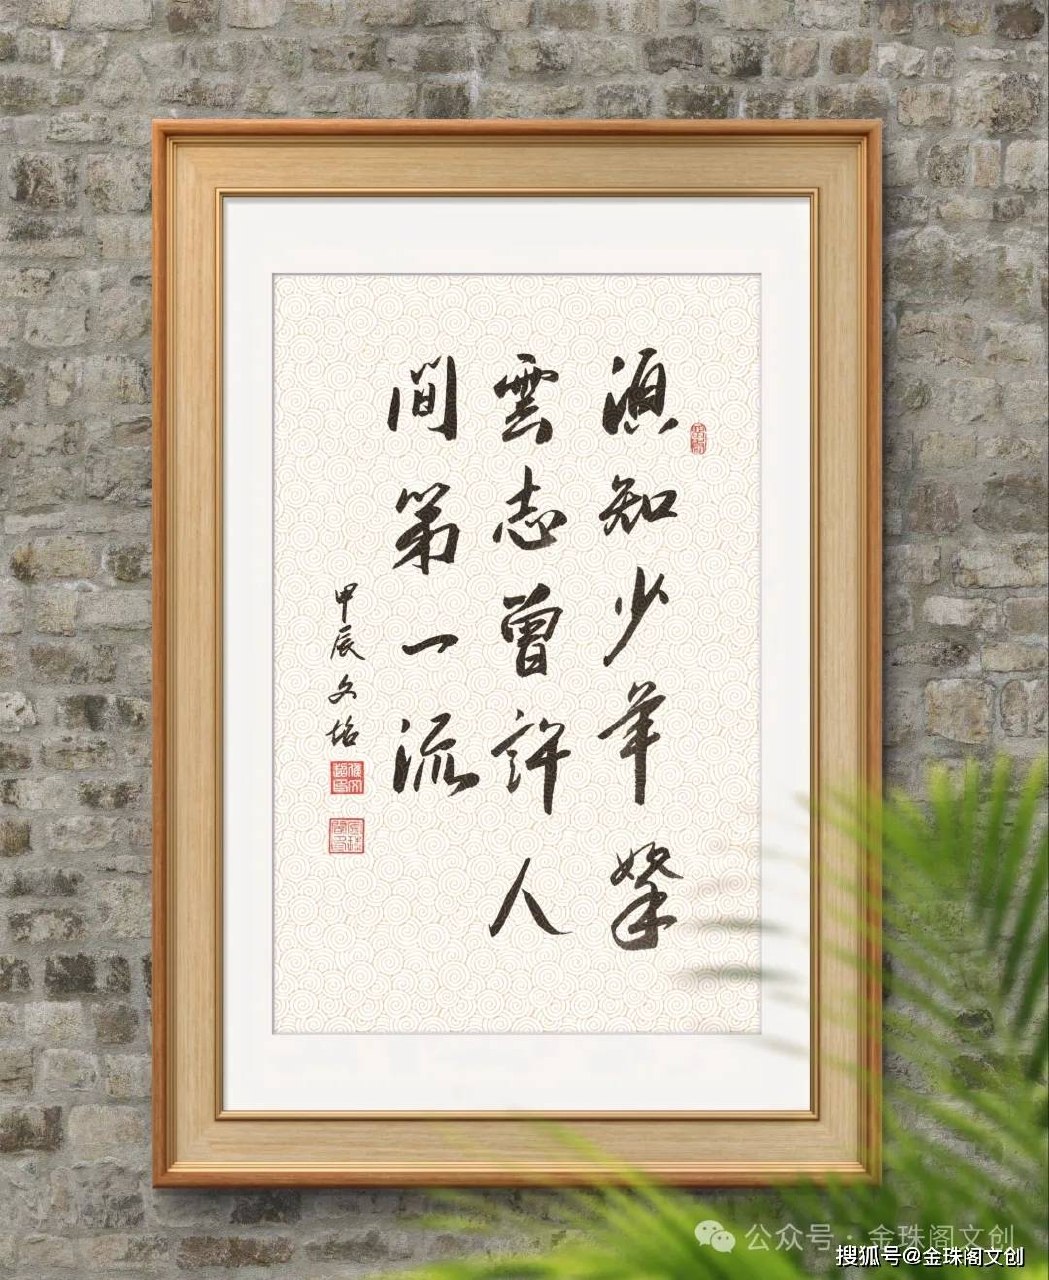 湏知少年拏
雲志曾許人
間第一流
甲辰文
公众号·金珠阁文创
搜狐号@金珠阁文创